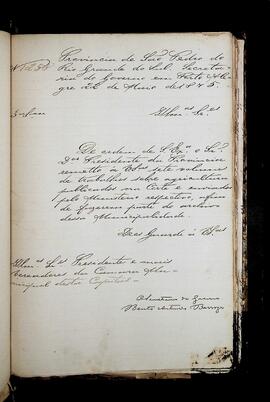 Provincia de São Pedro do
Rio Grande do Sul. Secreta-
ria do Governo em Porto Ale-
gre 22 de Maio de 1875.
Illm.os Sr.es
De ordem de S. Ex.a o Sr.
Dr. Presidente da Provincia
remetto a VS.as sete volumes
de trabalhos sobre agricultura
publicados na Côrte e enviados
pelo Ministerio respectivo, afim
de fazerem parte do archivo
dessa Municipalidade.
Deos Guarde a VS.as
Illm.os Sr.es Presidente e mais
Vereadores da Camara Mu-
nicipal desta Capital.